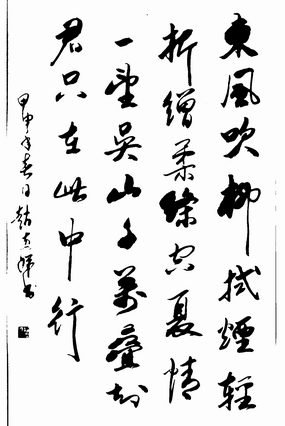 東風吹柳拭煙輕
折繒柔條夏情
一望吳山千萬疊知
君只在此中行
甲申年春日趙書